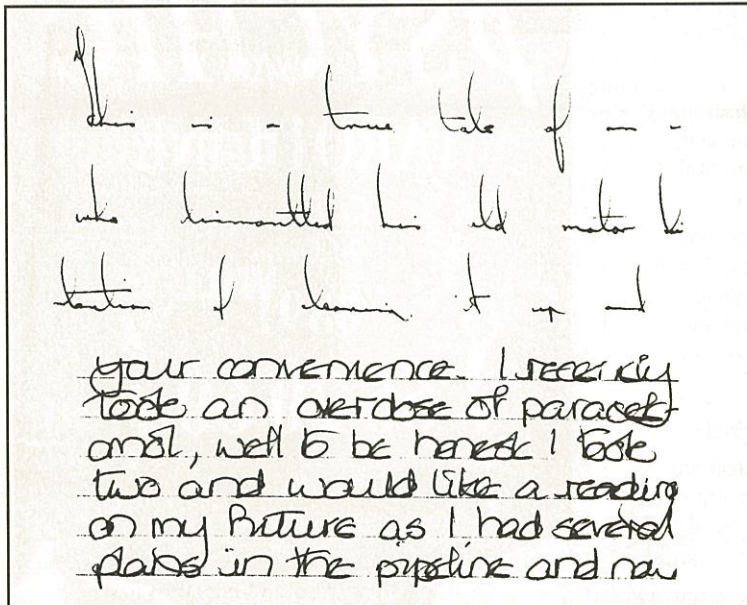 This is a true tale of a
who dismantled his old motor bi
tention of cleaning it up and
your convenience. I recently
took an overdose of paracet-
amol, well to be honest I took
two and would like a reading
on my future as I had several
plans in the pipeline and now